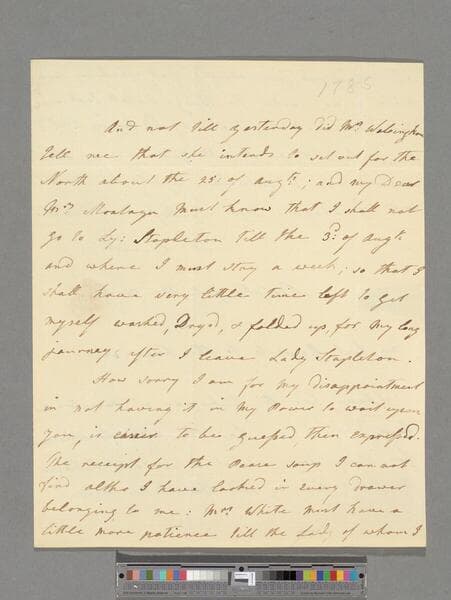 1785
And not till yesterday did Mrs Walsingham
tell me that she intends to set out for the
North about the 25: of Augt:; and my Dear
Mrs Montagu must know that I shall not
go to Ly: Stapleton till the 3d: of Augt:
and where I must stay a week; so that I
shall have very little time left to get
myself washed, Dry'd, & folded up, for my long
journey after I leave Lady Stapleton.
How sorry I am for my disappointment
in not having it in my Power to wait upon
you, is easier to bee guessed then expressed.
The receipt for the Pease soup I can not
find altho I have looked in every drawer
belonging to me: Mrs White must have a
little more patience till the Lady of whom I